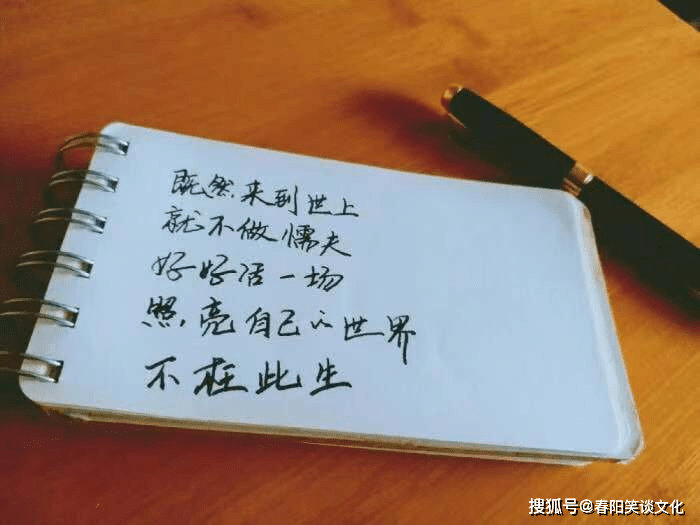 既然来到世上
就不做懦夫
好好活一场
照亮自己的世界
不枉此生
搜狐号@春阳笑谈文化